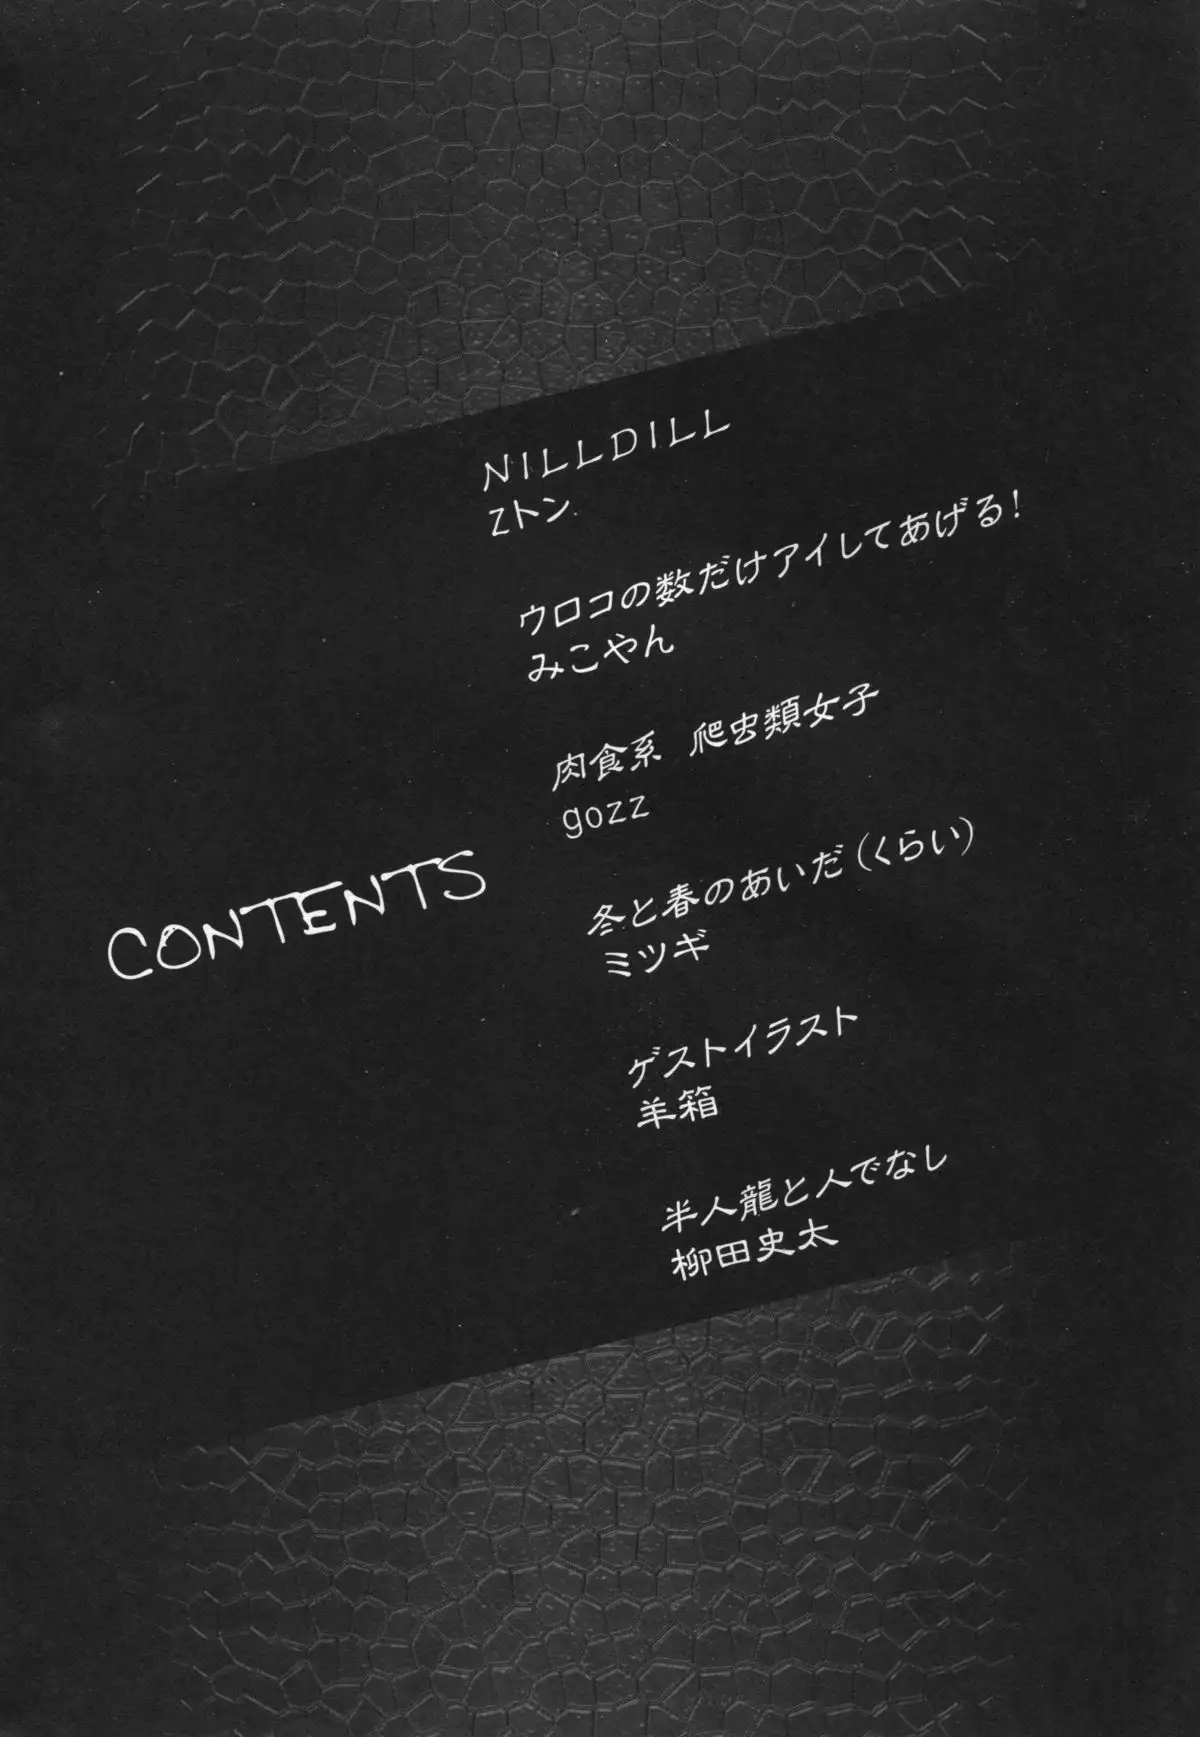 NILLDILL
Zトン
ウロコの数だけアイしてあげる!
みこやん
肉食系 爬虫類女子
gozz
冬と春のあいだ(くらい)
ミツギ
CONTENTS
ゲストイラスト
羊箱
半人龍と人でなし
柳田史太